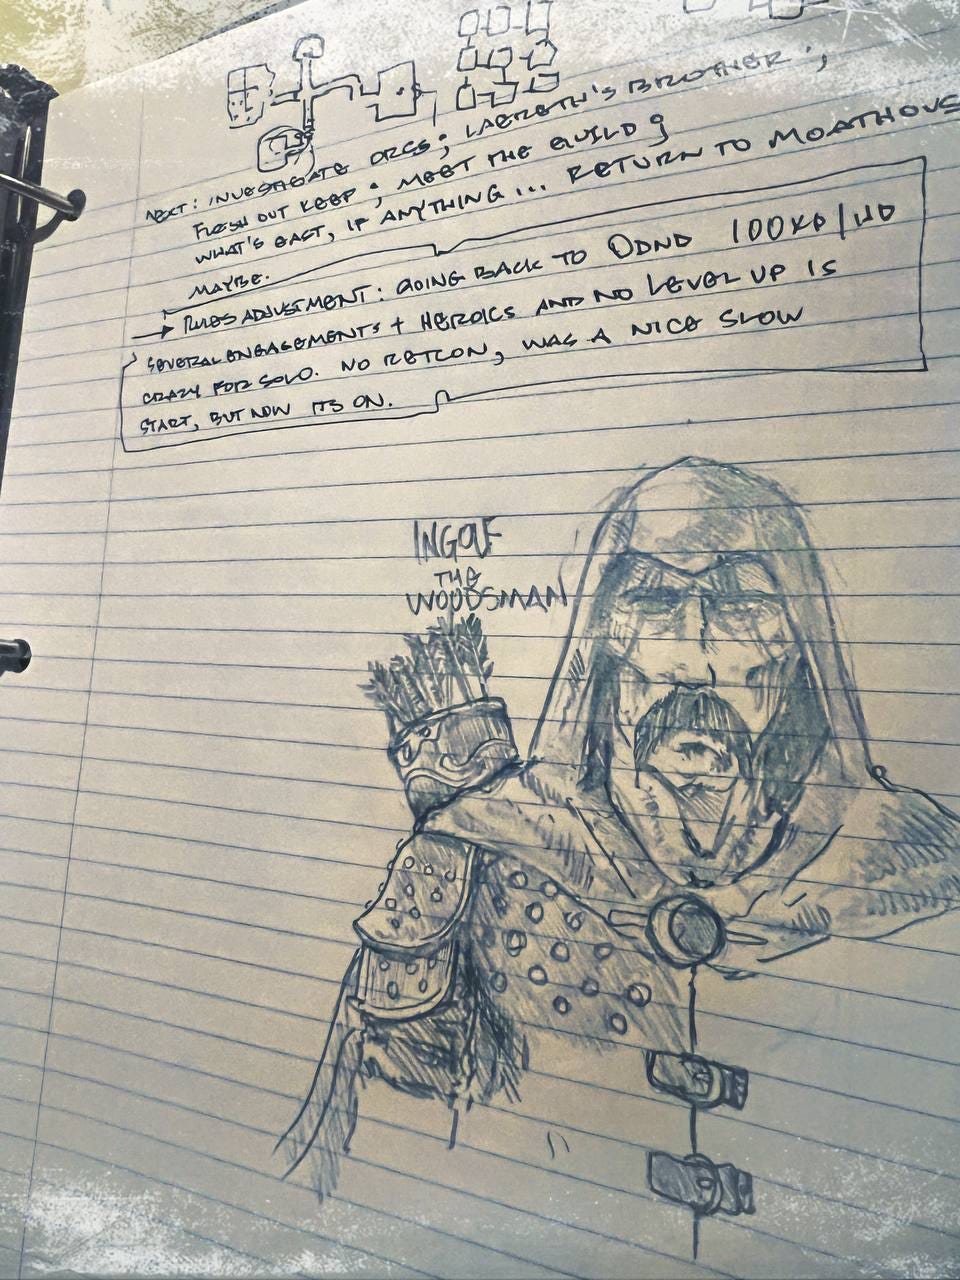 NEXT: INVESTIGATE ORCS; LAERETH'S BROTHER;
FLESH OUT KEEP; MEET THE GUILD;
WHAT'S EAST, IF ANYTHING... RETURN TO MOATHOUSE
MAYBE.
→ RULES ADJUSTMENT: GOING BACK TO ODND 100XP/HD
SEVERAL ENGAGEMENTS + HEROICS AND NO LEVEL UP IS
CRAZY FOR SOLO. NO RETCON, WAS A NICE SLOW
START, BUT NOW ITS ON.
INGOLF
THE
WOODSMAN